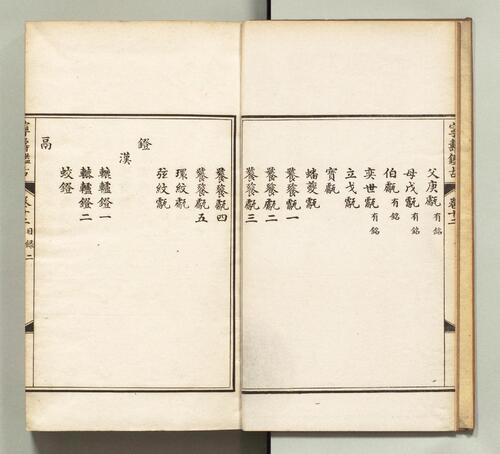 寧壽鑑古 卷十二
父庚甗 有銘
母戊甗 有銘
伯甗 有銘
奕世甗 有銘
立戈甗
寶甗
蟠夔甗
饕餮甗一
饕餮甗二
饕餮甗三
饕餮甗四
饕餮甗五
環紋甗
弦紋甗
鐙
漢
轆轤鐙一
轆轤鐙二
蛟鐙
鬲
寧壽鑑古 卷十二目錄 二